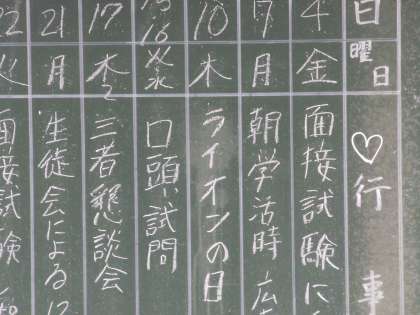 日 曜日 ♡行事
4 金 面接試験に
7 月 朝学活時
10 木 ライオンの日
16 口頭試問
17 木 三者懇談会
21 月 生徒会による
22 火 面接試験